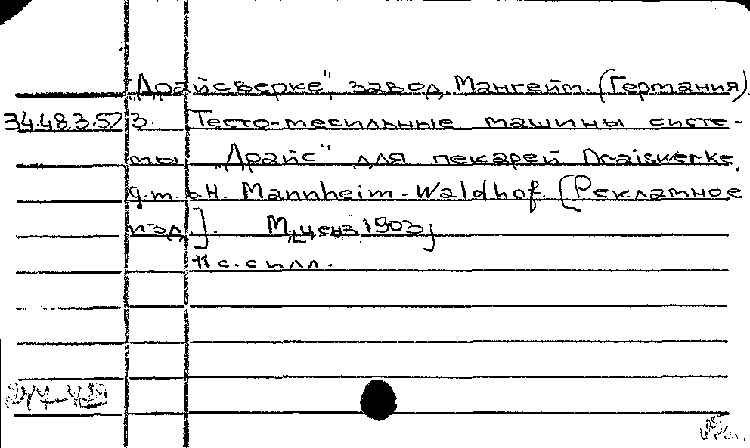 „Драйсверке", завод, Мангейм. (Германия)
34.48.3.52 3. Тесто-месильные машины систе-
мы „Драйс" для пекарей Draiswerke,
g.m.b.H. Mannheim-Waldhof [Рекламное
изд.]. М, ценз 1903,
11 с. с илл.